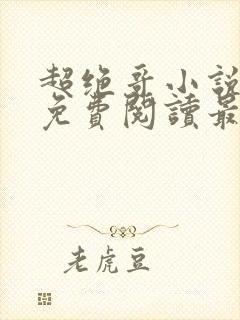 超绝哥小説
免費閱讀最
老虎豆